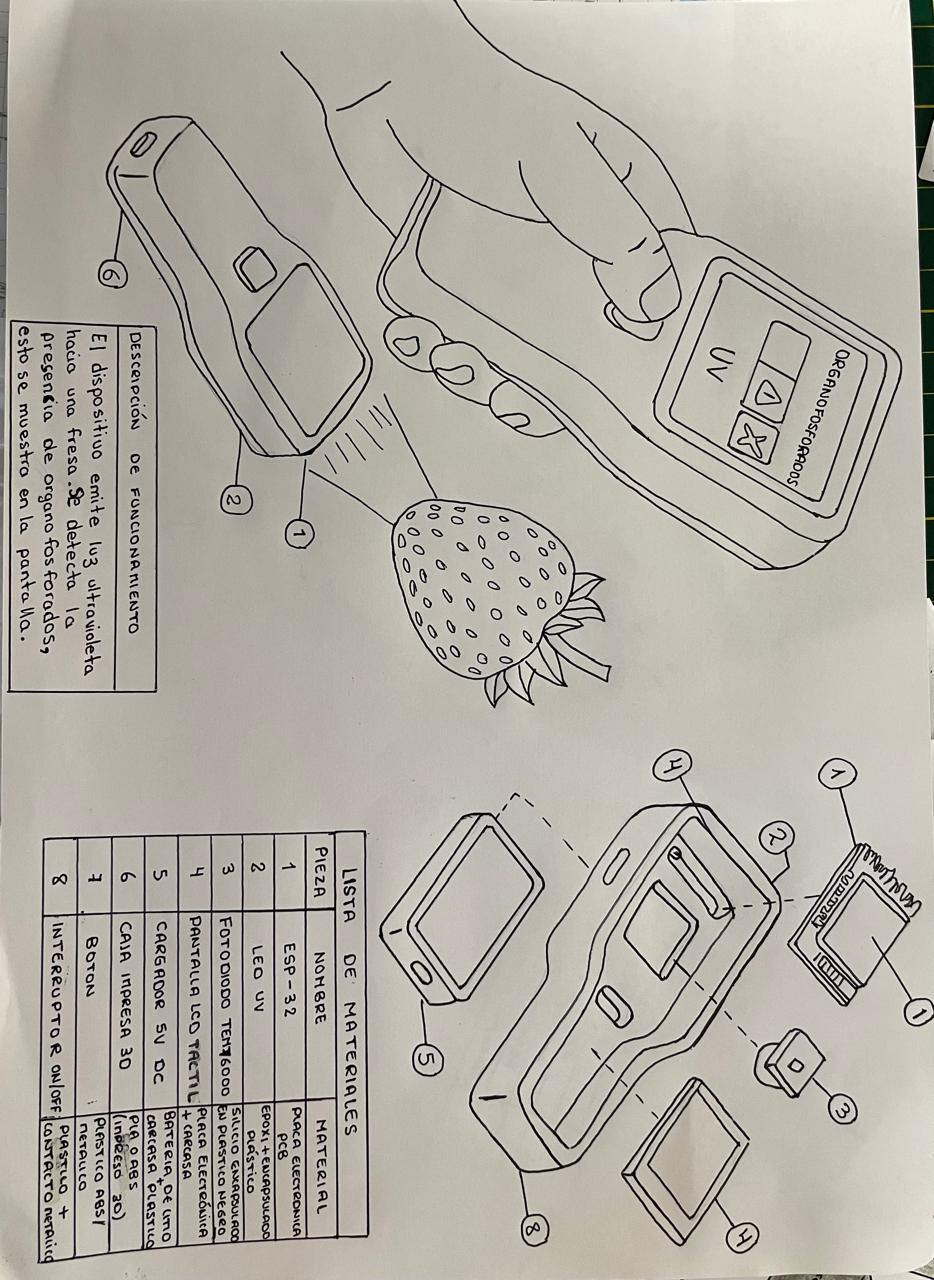 ORGANOFOSFORADOS
UV
6
2
1
DESCRIPCIÓN DE FUNCIONAMIENTO
El dispositivo emite luz ultravioleta
hacia una fresa. Se detecta la
presencia de organofosforados,
esto se muestra en la pantalla.
1
1
2
4
3
5
4
8
LISTA DE MATERIALES
PIEZA NOMBRE MATERIAL
1 ESP-32 PLACA ELECTRONICA PCB
2 LED UV EPOXI + ENCAPSULADO PLÁSTICO
3 FOTODIODO TEMT6000 SILICIO ENCAPSULADO EN PLASTICO NEGRO
4 PANTALLA LCD TACTIL PLACA ELECTRÓNICA + CARCASA
5 CARGADOR 5V DC BATERIA DE LITIO + CARCASA PLASTICO
6 CAJA IMPRESA 3D PLA O ABS (IMPRESO 3D)
7 BOTON PLASTICO ABS/ METALICO
8 INTERRUPTOR ON/OFF PLASTICO + CONTACTO METALICO